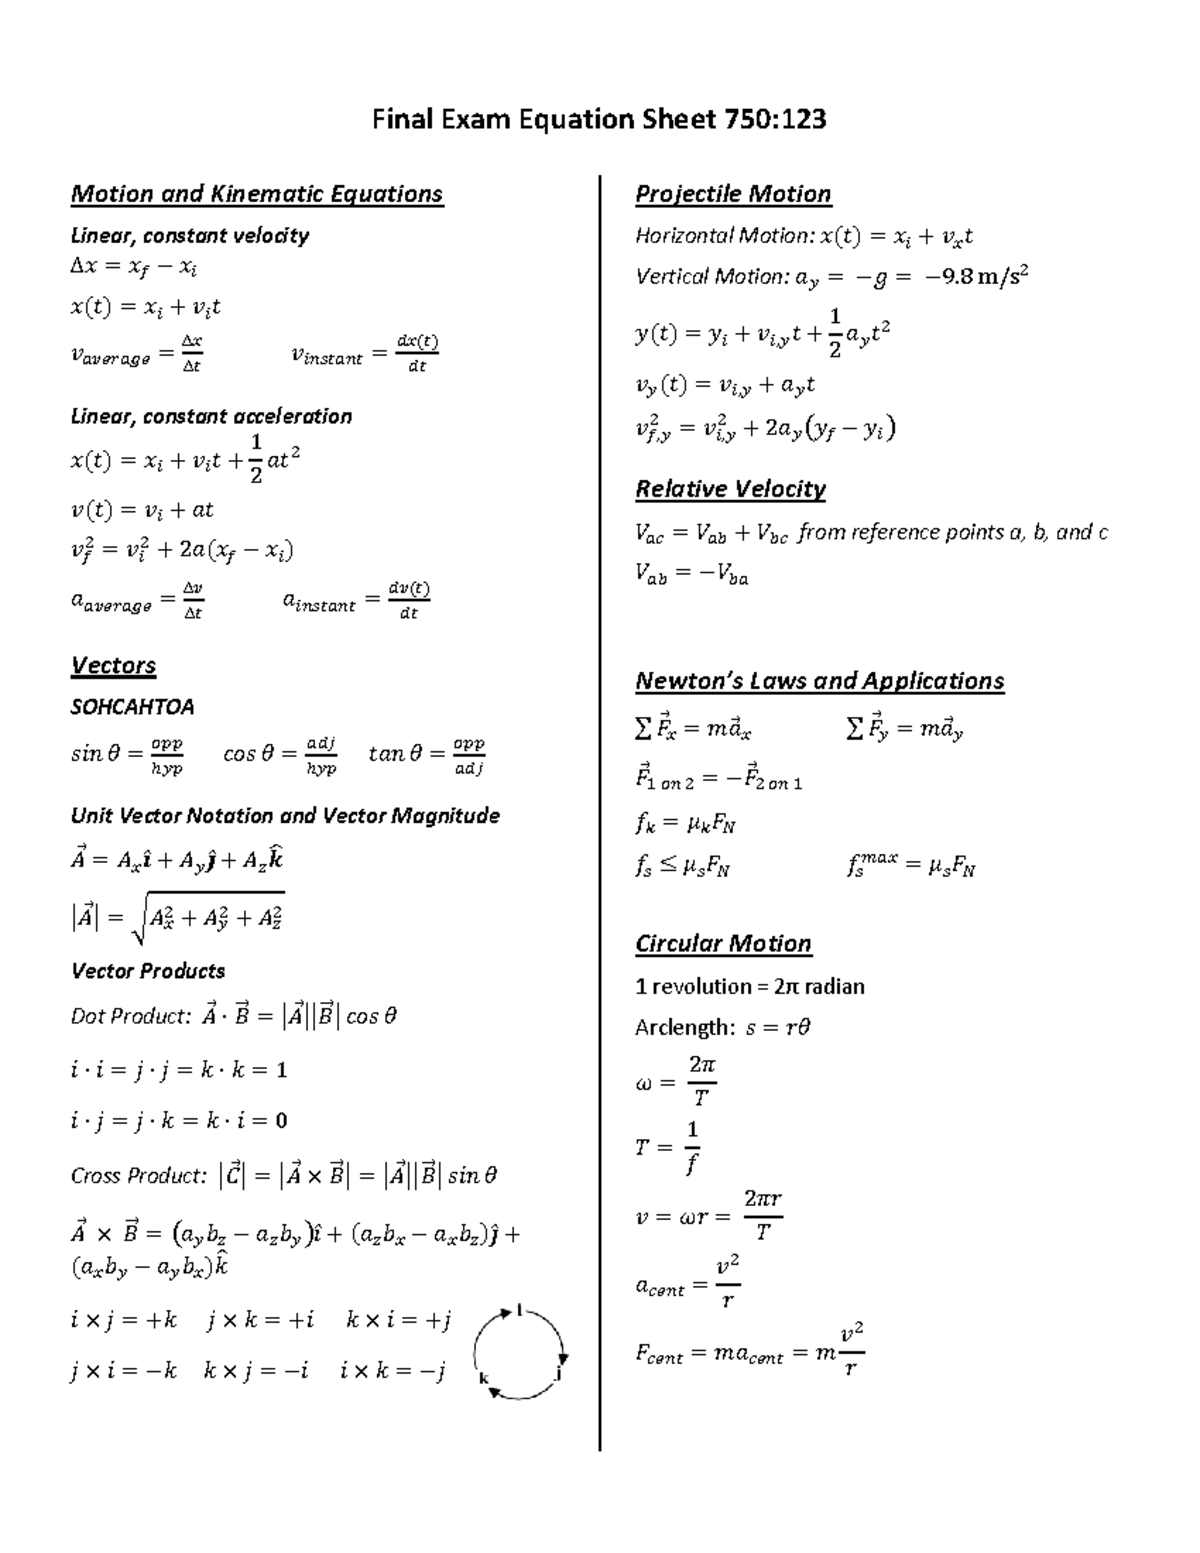 Final Exam Equation Sheet 750:123
Motion and Kinematic Equations
Linear, constant velocity
Δx = x_f − x_i
x(t) = x_i + v_i t
v_average = Δx/Δt v_instant = dx(t)/dt
Linear, constant acceleration
x(t) = x_i + v_i t + 1/2 at²
v(t) = v_i + at
v_f² = v_i² + 2a(x_f − x_i)
a_average = Δv/Δt a_instant = dv(t)/dt
Vectors
SOHCAHTOA
sin θ = opp/hyp cos θ = adj/hyp tan θ = opp/adj
Unit Vector Notation and Vector Magnitude
A⃗ = A_x î + A_y ĵ + A_z k̂
|A⃗| = √(A_x² + A_y² + A_z²)
Vector Products
Dot Product: A⃗ · B⃗ = |A⃗||B⃗| cos θ
i · i = j · j = k · k = 1
i · j = j · k = k · i = 0
Cross Product: |C⃗| = |A⃗ × B⃗| = |A⃗||B⃗| sin θ
A⃗ × B⃗ = (a_y b_z − a_z b_y)î + (a_z b_x − a_x b_z)ĵ +
(a_x b_y − a_y b_x)k̂
i × j = +k j × k = +i k × i = +j
j × i = −k k × j = −i i × k = −j
i
j
k
Projectile Motion
Horizontal Motion: x(t) = x_i + v_x t
Vertical Motion: a_y = −g = −9.8 m/s²
y(t) = y_i + v_i,y t + 1/2 a_y t²
v_y(t) = v_i,y + a_y t
v_f,y² = v_i,y² + 2a_y(y_f − y_i)
Relative Velocity
V_ac = V_ab + V_bc from reference points a, b, and c
V_ab = −V_ba
Newton’s Laws and Applications
∑ F⃗_x = ma⃗_x ∑ F⃗_y = ma⃗_y
F⃗_1 on 2 = −F⃗_2 on 1
f_k = μ_k F_N
f_s ≤ μ_s F_N f_s^max = μ_s F_N
Circular Motion
1 revolution = 2π radian
Arclength: s = rθ
ω = 2π/T
T = 1/f
v = ωr = 2πr/T
a_cent = v²/r
F_cent = ma_cent = m v²/r